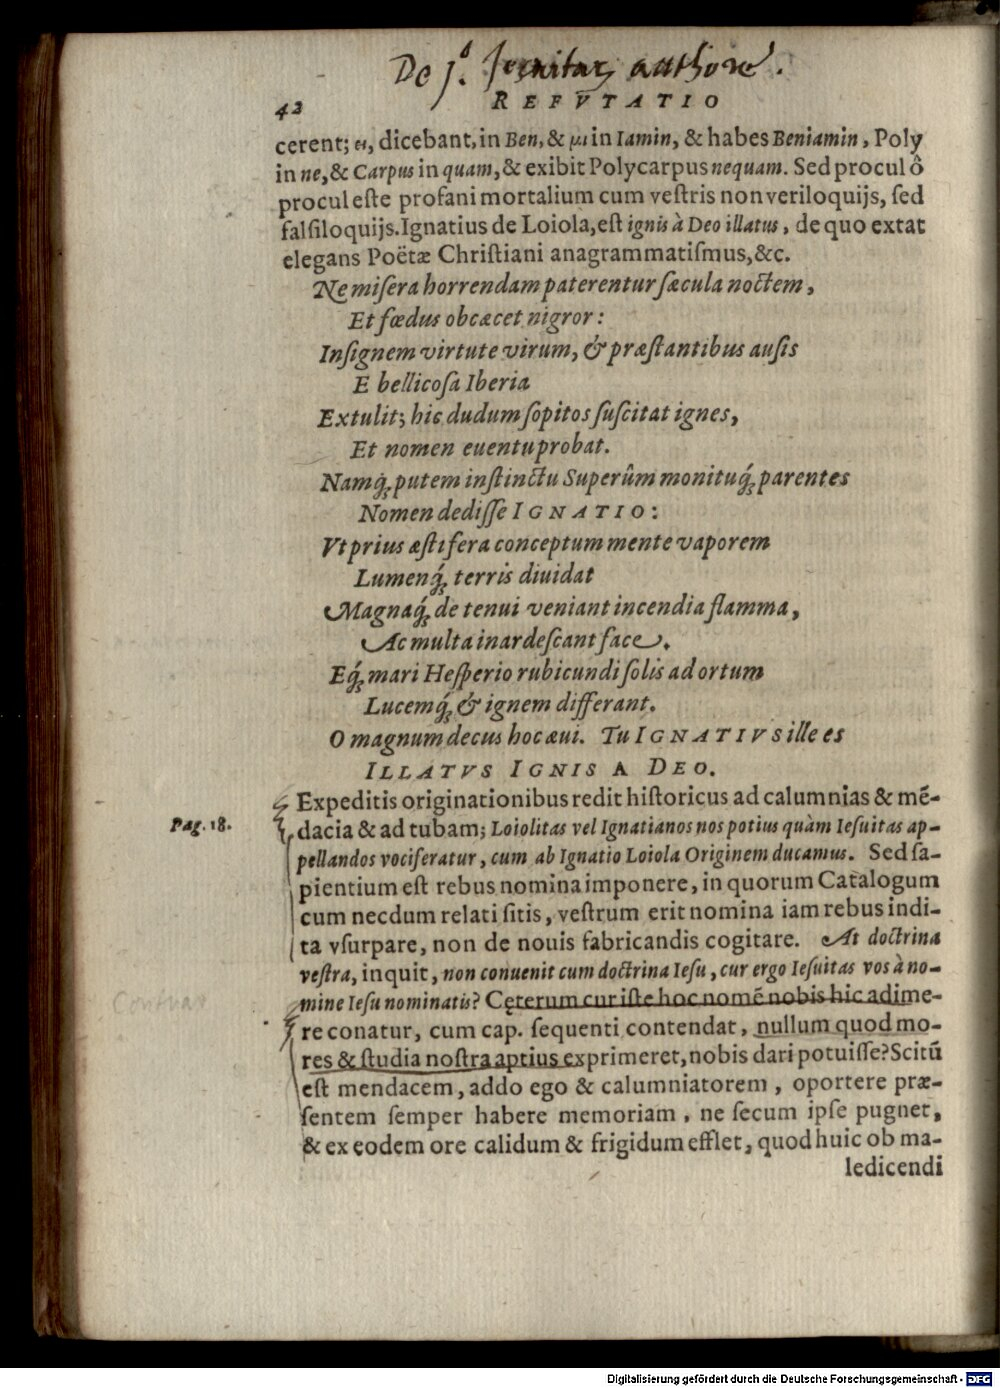 42
REFVTATIO
cerent; ει, dicebant, in Ben, & μι in Iamin, & habes Beniamin, Poly
in ne, & Carpus in quam, & exibit Polycarpus nequam. Sed procul ô
procul eſte profani mortalium cum veſtris non veriloquijs, ſed
falſiloquijs. Ignatius de Loiola, eſt ignis à Deo illatus, de quo extat
elegans Poëtæ Chriſtiani anagrammatiſmus, &c.
Ne miſera horrendam paterentur ſæcula noctem,
Et fœdus obcæcet nigror:
Inſignem virtute virum, & præſtantibus auſis
E bellicoſa Iberia
Extulit; hic dudum ſopitos ſuſcitat ignes,
Et nomen euentu probat.
Namq́; putem inſtinctu Superûm monituq́; parentes
Nomen dediſſe IGNATIO:
Vt prius æſtifera conceptum mente vaporem
Lumenq́; terris diuidat
Magnaq́; de tenui veniant incendia flamma,
Ac multa inardeſcant face.
Eq́; mari Heſperio rubicundi ſolis ad ortum
Lucemq́; & ignem differant.
O magnum decus hoc æui. Tu IGNATIVS ille es
ILLATVS IGNIS A DEO.
Expeditis originationibus redit hiſtoricus ad calumnias & mẽ-
Pag. 18.
dacia & ad tubam; Loiolitas vel Ignatianos nos potius quàm Ieſuitas ap-
pellandos vociferatur, cum ab Ignatio Loiola Originem ducamus. Sed ſa-
pientium eſt rebus nomina imponere, in quorum Catalogum
cum necdum relati ſitis, veſtrum erit nomina iam rebus indi-
ta vſurpare, non de nouis fabricandis cogitare. At doctrina
veſtra, inquit, non conuenit cum doctrina Ieſu, cur ergo Ieſuitas vos à no-
mine Ieſu nominatis? Cęterum cur iſte hoc nomẽ nobis hic adime-
re conatur, cum cap. ſequenti contendat, nullum quod mo-
res & ſtudia noſtra aptius exprimeret, nobis dari potuiſſe? Scitũ
eſt mendacem, addo ego & calumniatorem, oportere præ-
ſentem ſemper habere memoriam, ne ſecum ipſe pugnet,
& ex eodem ore calidum & frigidum efflet, quod huic ob ma-
ledicendi
Digitalisierung gefördert durch die Deutsche Forschungsgemeinschaft - DFG